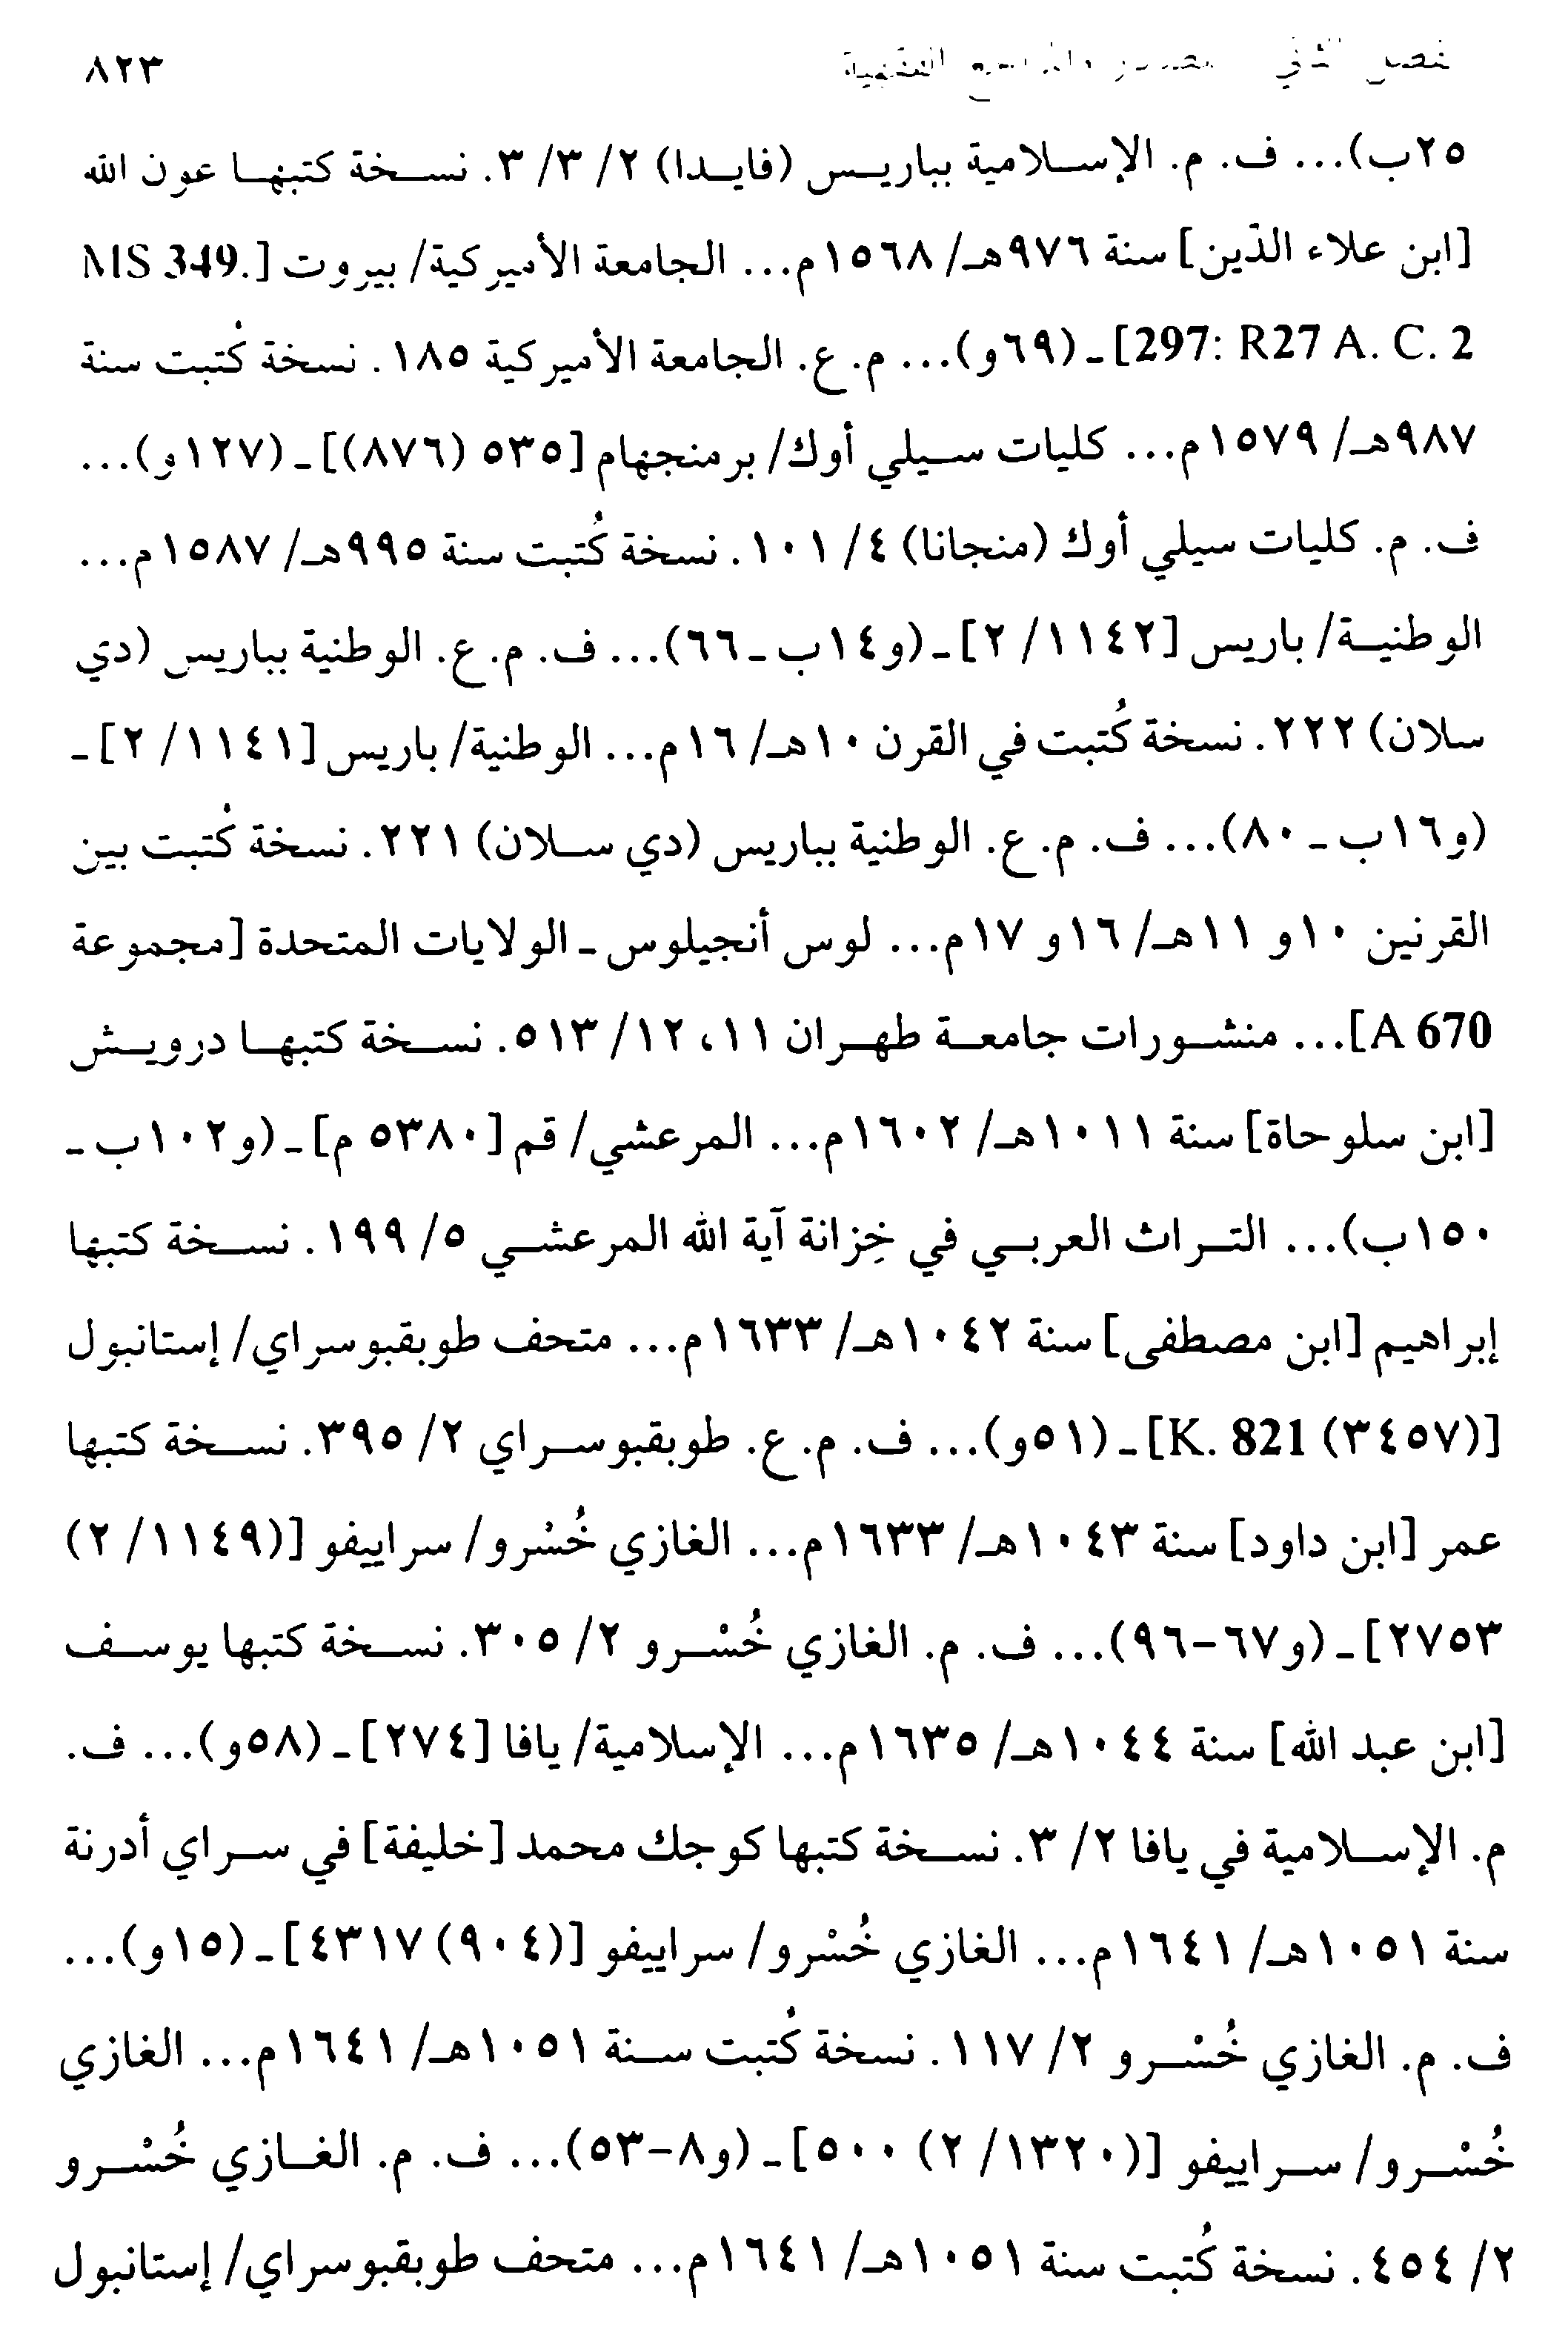 ٨٢٣
٢٥ب)... ف. م. الإسلامية بباريس (فايدا) ٢/ ٣/ ٣. نسخة كتبها عون الله
[ابن علاء الدّين] سنة ٩٧٦هـ/ ١٥٦٨م... الجامعة الأميركية/ بيروت [MS 349.
297: R27 A. C. 2] ـ (٦٩و)... م. ع. الجامعة الأميركية ١٨٥. نسخة كُتبت سنة
٩٨٧هـ/ ١٥٧٩م... كليات سيلي أوك/ برمنجهام [٥٣٥ (٨٧٦)] ـ (١٢٧و)...
ف. م. كليات سيلي أوك (منجانا) ٤/ ١٠١. نسخة كُتبت سنة ٩٩٥هـ/ ١٥٨٧م...
الوطنية/ باريس [١١٤٢/ ٢] ـ (و١٤ب ـ ٦٦)... ف. م. ع. الوطنية بباريس (دي
سلان) ٢٢٢. نسخة كُتبت في القرن ١٠هـ/ ١٦م... الوطنية/ باريس [١١٤١/ ٢] ـ
(و١٦ب ـ ٨٠)... ف. م. ع. الوطنية بباريس (دي سلان) ٢٢١. نسخة كُتبت بين
القرنين ١٠و ١١هـ/ ١٦و ١٧م... لوس أنجيلوس ـ الولايات المتحدة [مجموعة
A 670]... منشورات جامعة طهران ١١، ١٢/ ٥١٣. نسخة كتبها درويش
[ابن سلوحاة] سنة ١٠١١هـ/ ١٦٠٢م... المرعشي/ قم [٥٣٨٠ م] ـ (و١٠٢ب ـ
١٥٠ب)... التراث العربي في خِزانة آية الله المرعشي ٥/ ١٩٩. نسخة كتبها
إبراهيم [ابن مصطفى] سنة ١٠٤٢هـ/ ١٦٣٣م... متحف طوبقبوسراي/ إستانبول
[(٣٤٥٧) K. 821] ـ (٥١و)... ف. م. ع. طوبقبوسراي ٢/ ٣٩٥. نسخة كتبها
عمر [ابن داود] سنة ١٠٤٣هـ/ ١٦٣٣م... الغازي خُسْرو/ سراييفو [(١١٤٩/ ٢)
٢٧٥٣] ـ (و٦٧-٩٦)... ف. م. الغازي خُسْرو ٢/ ٣٠٥. نسخة كتبها يوسف
[ابن عبد الله] سنة ١٠٤٤هـ/ ١٦٣٥م... الإسلامية/ يافا [٢٧٤] ـ (٥٨و)... ف.
م. الإسلامية في يافا ٢/ ٣. نسخة كتبها كوجك محمد [خليفة] في سراي أدرنة
سنة ١٠٥١هـ/ ١٦٤١م... الغازي خُسْرو/ سراييفو [(٩٠٤) ٤٣١٧] ـ (١٥و)...
ف. م. الغازي خُسْرو ٢/ ١١٧. نسخة كُتبت سنة ١٠٥١هـ/ ١٦٤١م... الغازي
خُسْرو/ سراييفو [(١٣٢٠/ ٢) ٥٠٠] ـ (و٨-٥٣)... ف. م. الغازي خُسْرو
٢/ ٤٥٤. نسخة كُتبت سنة ١٠٥١هـ/ ١٦٤١م... متحف طوبقبوسراي/ إستانبول